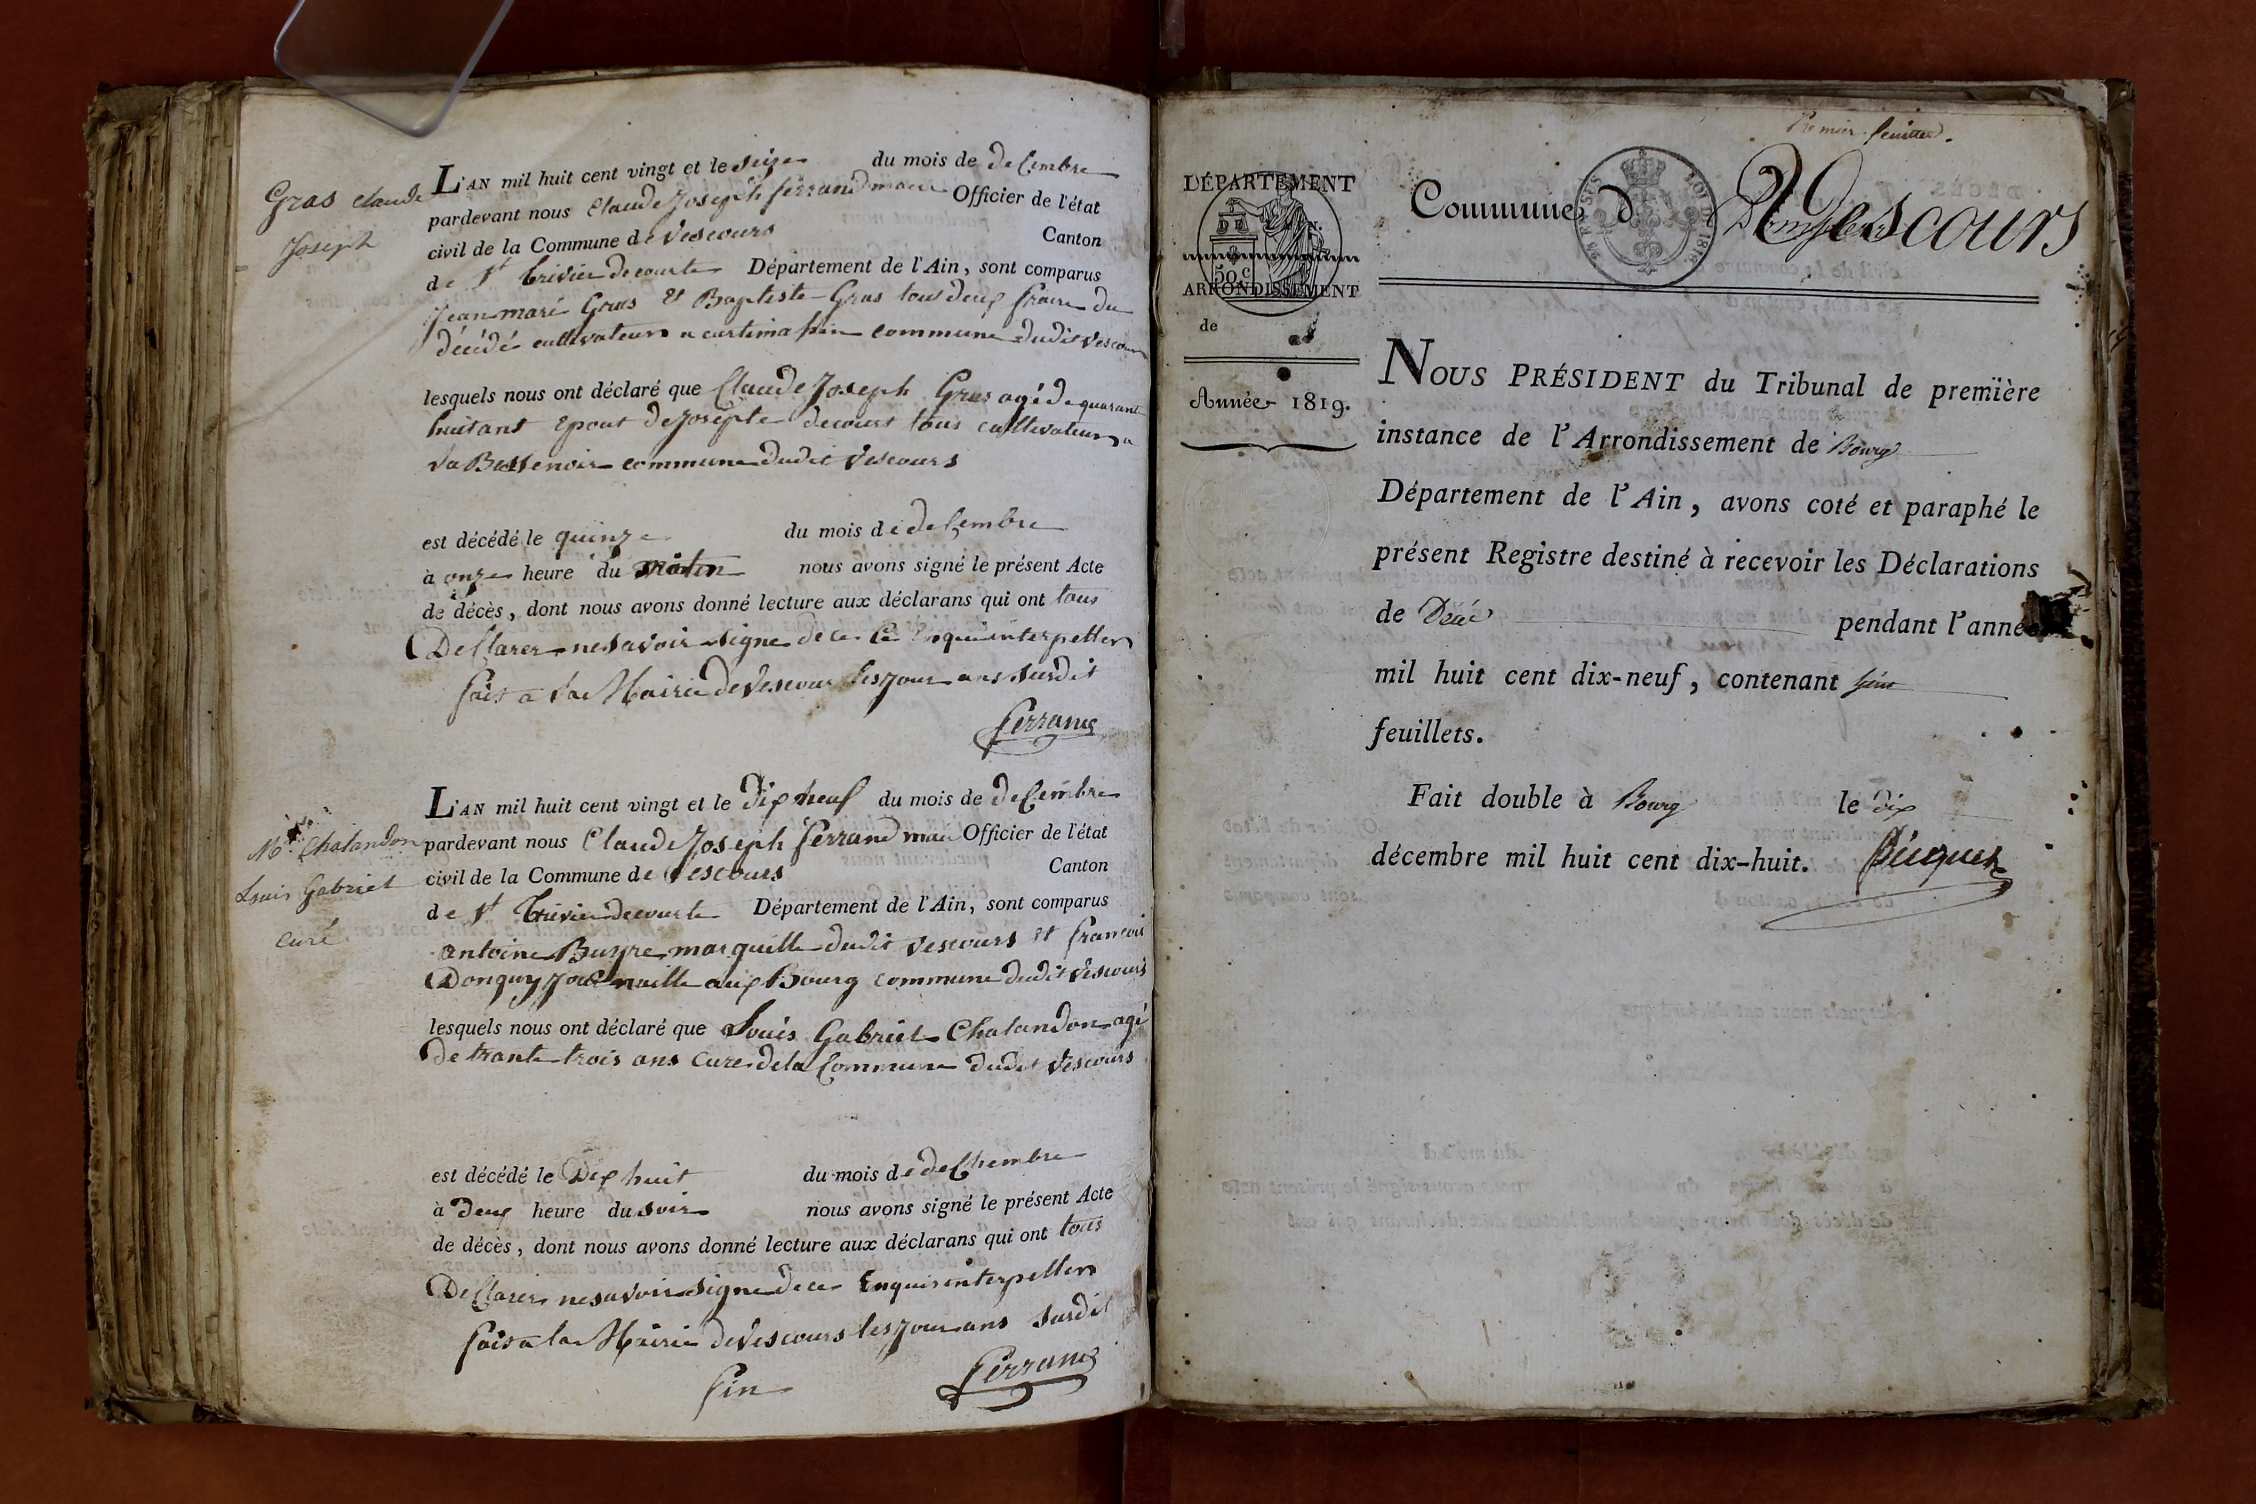 Gras Claude
Joseph
L'AN mil huit cent vingt et le seize du mois de decembre
pardevant nous Claude Joseph ferrand maire Officier de l'état
civil de la Commune de Vescours Canton
de St trivier de courte Département de l'Ain, sont comparus
Jean marie Gras et Baptiste Gras tous deux fraire du
décédé cultivateurs a commune dudit Vescours
lesquels nous ont déclaré que Claude Joseph Gras agé de quarante
huit ans Epout de Josepte decourt tous cultivateurs a
commune dudit Vescours
est décédé le quinze du mois de decembre
à onze heure du matin nous avons signé le présent Acte
de décès, dont nous avons donné lecture aux déclarans qui ont tous
Declarer ne savoir signe de ce Enquis interpeller
fait a la Mairie de Vescour les jour ans susdit
ferrand
Mr Chalandon
Louis Gabriel
curé
L'AN mil huit cent vingt et le dix neuf du mois de decembre
pardevant nous Claude Joseph ferrand maire Officier de l'état
civil de la Commune de Vescours Canton
de St trivier de courte Département de l'Ain, sont comparus
antoine Buyre marguille dudit Vescours et francois
Donguy aux Bourg commune dudit Vescours
lesquels nous ont déclaré que Louis Gabriel Chalandon agé
de trante trois ans cure de la Commune dudit Vescours
est décédé le Dix huit du mois de dechembre
à deux heure du soir nous avons signé le présent Acte
de décès, dont nous avons donné lecture aux déclarans qui ont tous
Declarer ne savoir signe de ce Enquis interpeller
fait a la Mairie de Vescours les jour ans susdit
fin ferrand
Premier feuillet.
DÉPARTEMENT
50 c
ARRONDISSEMENT
de
Année 1819.
Commune d Vescours
NOUS PRÉSIDENT du Tribunal de première
instance de l'Arrondissement de Bourg
Département de l'Ain, avons coté et paraphé le
présent Registre destiné à recevoir les Déclarations
de Décés pendant l'année
mil huit cent dix-neuf, contenant
feuillets.
Fait double à Bourg le dix
décembre mil huit cent dix-huit.